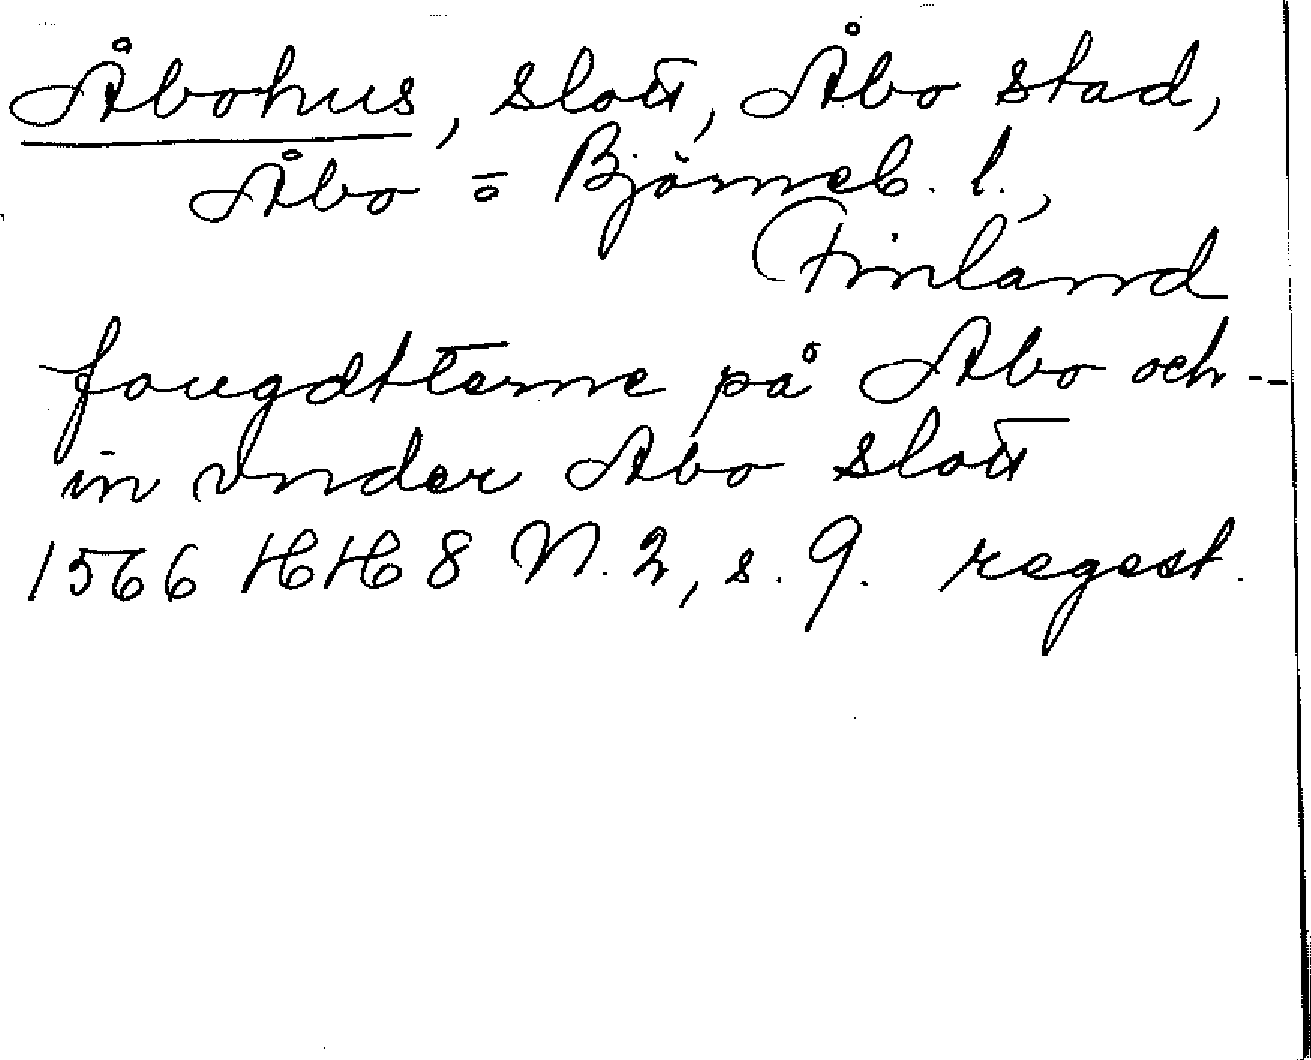 Åbohus, slott, Åbo stad,
Åbo o Björneb. l.,
Finland
fougdtterne på Åbo och --
in vnder Åbo slott
1566 HH 8 N. 2, s. 9. regest.